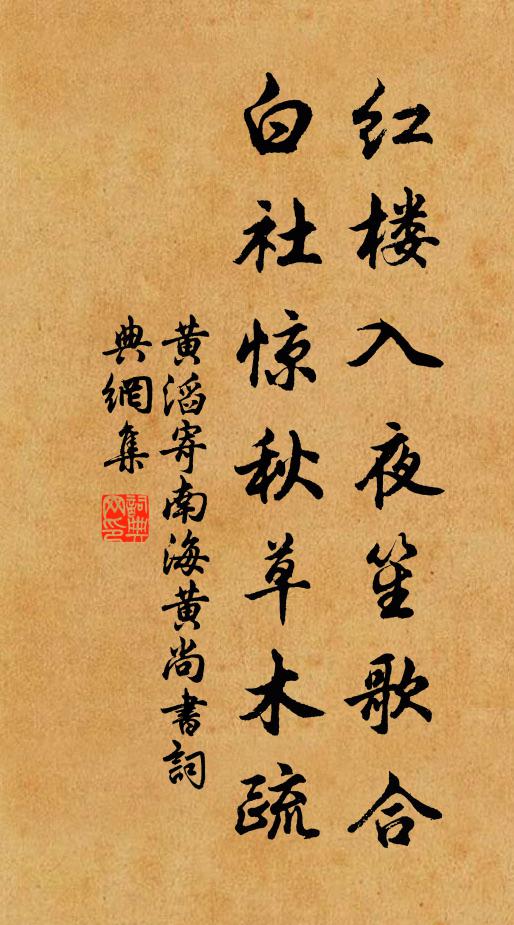 红楼入夜笙歌合
白社惊秋草木疏
黄滔寄南海黄尚書詞
典網集
詞典網印